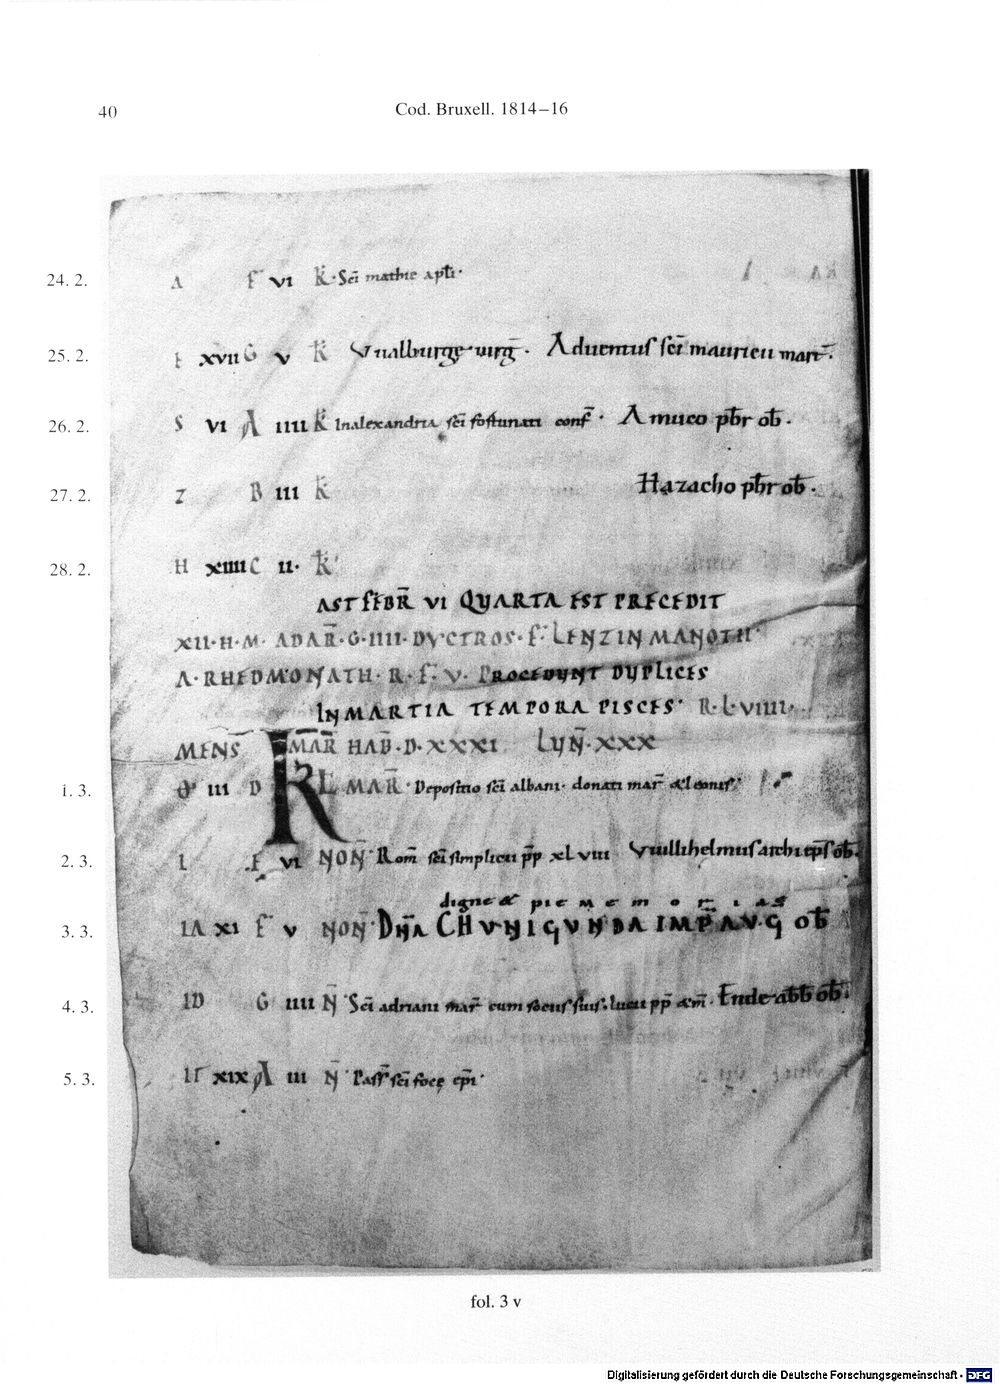 40
Cod. Bruxell. 1814–16
24. 2. A F VI K̄ · Sc̄i mathie apłi ·
25. 2. XVII G V K̄ Uualburge uirḡ · Aduentus sc̄i mauricii mart̄ ·
26. 2. S VI A IIII K̄ In alexandria sc̄i fortunati conf̄ · Amuco pb̄r ob̄ ·
27. 2. Z B III K̄ Hazacho pb̄r ob̄ ·
28. 2. H XIIII C II · K̄
AST FEBR̄ VI QUARTA EST PRECEDIT
XII · H · M · ADAR̄ · G · IIII · DYCTROS · F · LENZINMANOTH
A · RHEDMONATH · R · F · V · PROCEDUNT DUPLICES
IN MARTIA TEMPORA PISCES · R · L · VIIII ·
MENS̄ MAR̄ HAB̄ · D · XXXI LUN̄ · XXX
1. 3. III D KL MAR̄ · Depositio sc̄i albani · donati mar̄ & leonis ·
2. 3. F VI NON̄ · Rom̄ sc̄i simplicii pp̄ XLVIII Uuillihelmus archiep̄s ob̄ ·
digne & pie memorias
3. 3. XI F V NON̄ · DN̄A CHUNIGUNDA IMP̄ AUG OB̄
4. 3. G IIII N̄ · Sc̄i adriani mar̄ cum sociis suis · lucii pp̄ & m̄ · Ende abb̄ ob̄ ·
5. 3. XIX A III N̄ · Pass̄ sc̄i foce ep̄i ·
fol. 3 v
Digitalisierung gefördert durch die Deutsche Forschungsgemeinschaft - DFG